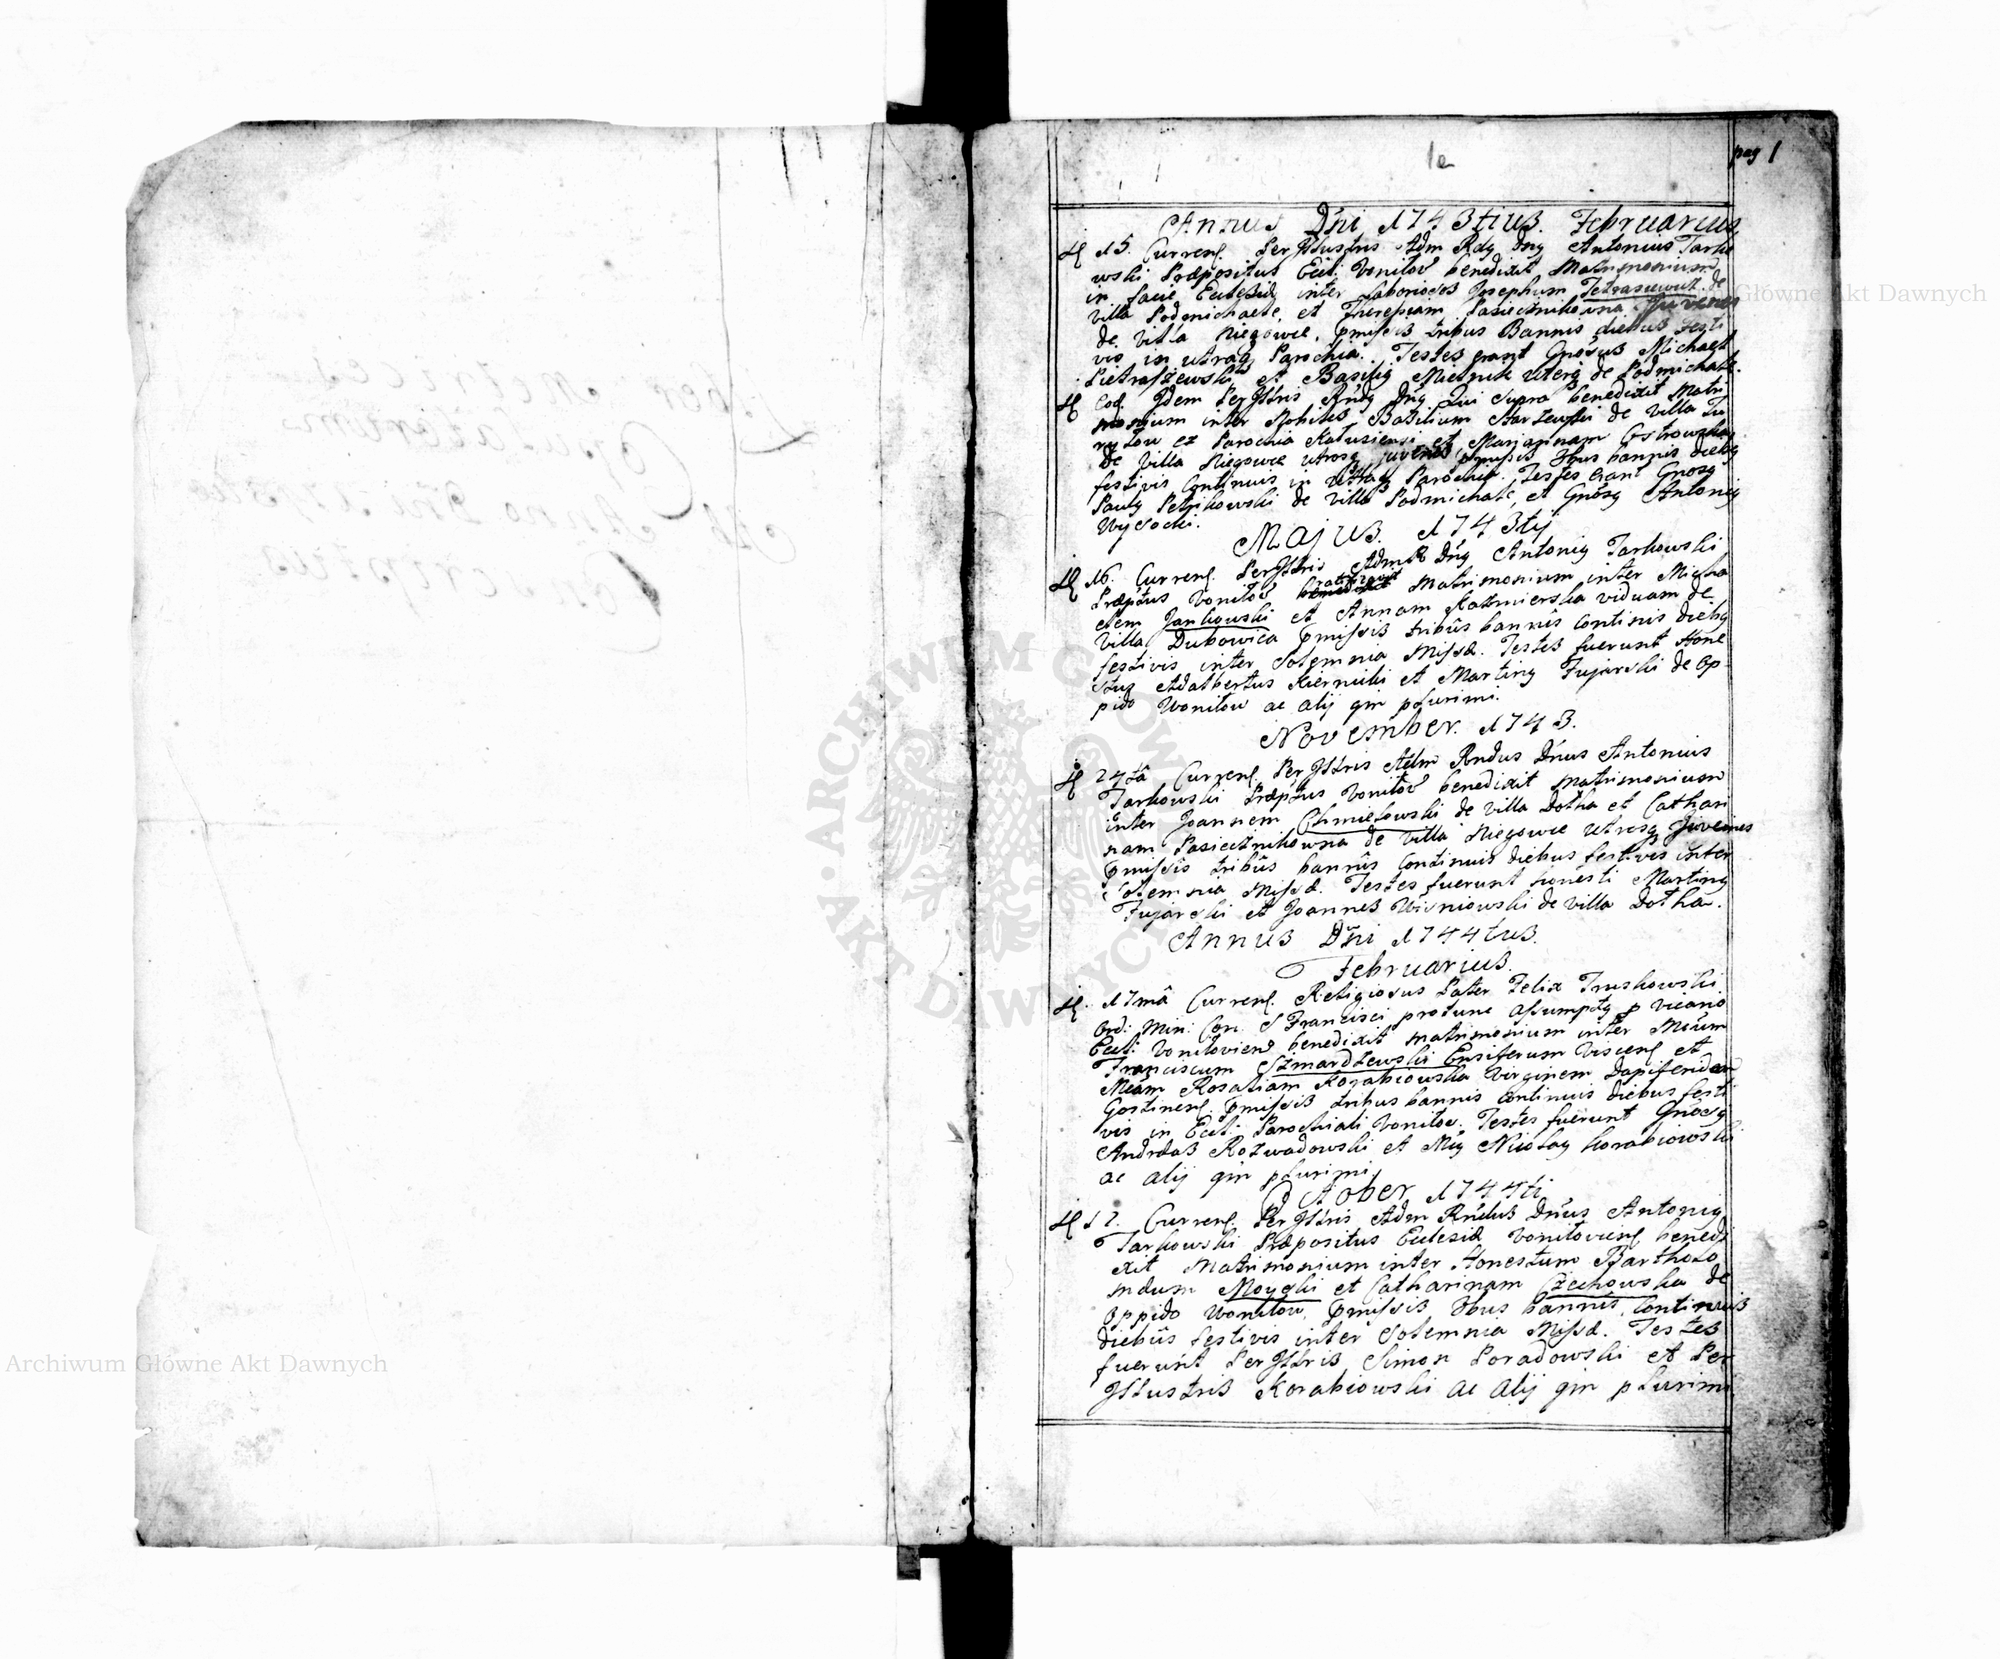 1a
pag 1
Annus Dni 1743tius. Februarius
15. Curren. Per Illustris Adm Rdg Dng Antonius Tarko
wski Præpositus Eccli Vonilov benedixit Matrimonium
in facie Ecclesiæ inter Laboriosos Josephum Tetrasiewut de
villa Podmichale, et Pasiecznikowna Juvenes
de villa Niegowce, pmissis tribus Bannis diebus festi
vis in utraq Parochia. Testes erant Gnosus Michael
Pietraszewski et Basilig Mielnik uterq de Podmichale.
Eod. Idem Per Illtris Rndg Dng Qui supra benedixit Matri
monium inter Nobiles Basilium Harlewski de villa Tu
ryłow ex Parochia Kałusiensi et Mariannam Ostrowska
de villa Niegowce utrosq juvenes pmissis 3bus bannis diebg
festivis Continuis in utraq Parochia. Testes Erant Gnosg
Paulg Petrikowski de villa Podmichale, et Gnosg Antonig
Wysocki.
Majus. 1743tij
16. Curren. Per Illtris Adm R Dng Antonig Tarkowski
Præptus Vonilov ratificavit Matrimonium inter Micha
elem Jankowski et Annam Kazmierska viduam de
villa Dubowica pmissis tribus bannis Continis diebg
festivis inter Solemnia Missæ. Testes fuerunt Hone
stus Adalbertus Kiernicki et Marting Fujarski de Op
pido Woniłow ac alij qm plurimi.
November. 1743.
24tâ Curren. Per Illtris Adm Rndus Dnus Antonius
Tarkowski Præptus Vonilov benedixit Matrimonium
inter Joannem Chmielowski de villa Dołha et Cathari
nam Pasiecznikowna de villa Niegowce utrosq Juvenes
pmissis tribûs bannîs Continuis diebus festivis inter
Solemnia Missæ. Testes fuerunt honesti Marting
Fujarski et Joannes Wisniowski de villa Dołha.
Annus Dni 1744tus.
Februarius.
17mâ Curren. Religiosus Pater Felix Truskowski
Ord: Min: Con: S Francisci protunc assumptg p vicario
Eccli: Voniloviens benedixit matrimonium inter Mcum
Franciscum Szmardzewski Ensiferum Viscens et
Mcam Rosaliam Korabiowska Virginem Dapiferidem
Gostinens. pmissis tribus bannis Continuis diebus festi
vis in Eccli: Parochiali Vonilov. Testes fuerunt Gnosg
Andreas Rozwadowski et Mcg Nicolag Korabiowski
ac alij qm plurimi
October 1744ti
17. Curren. Per Illtris Adm Rndus Dnus Antonig
Tarkowski Præpositus Ecclesiæ Voniloviens benedi
xit Matrimonium inter Honestum Bartholo
mæum Moyghi et Catharinam Czechowska de
Oppido Woniłow, pmissis 3bus bannis, Continuis
diebûs festivis inter Solemnia Missæ. Testes
fuerunt Per Illtris Simon Poradowski et Per
Illustris Korabiowski ac alij qm plurimi
ARCHIWUM GŁÓWNE AKT DAWNYCH
Główne Akt Dawnych
Archiwum Główne Akt Dawnych